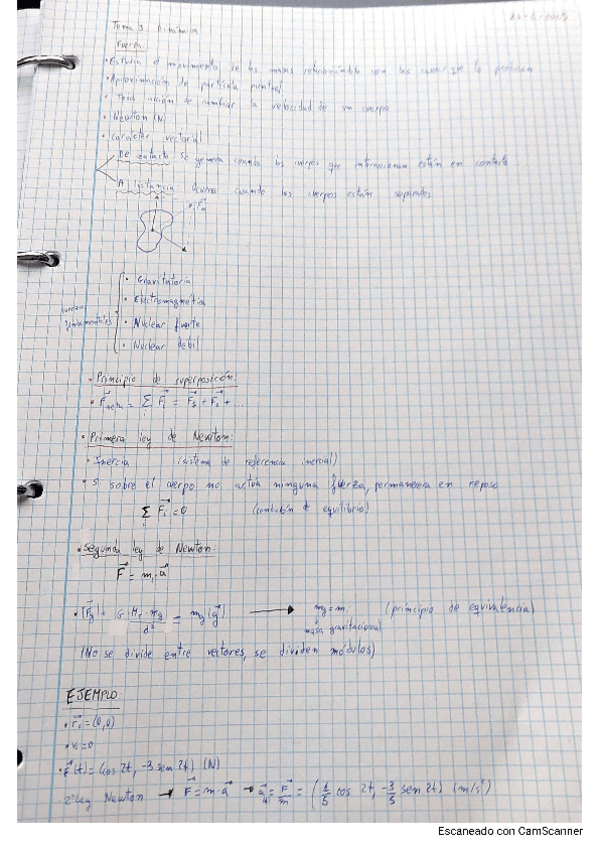 Tema 3: Dinámica
Fuerza:
• Estudia el movimiento de las masas relacionándola con las causas que lo producen
• Aproximación de partícula puntual
• Toda acción de cambiar la velocidad de un cuerpo
• Newton (N)
• Carácter vectorial
De contacto: se genera cuando los cuerpos que interaccionan están en contacto
A distancia: cuando los cuerpos están separados
Fuerzas fundamentales
• Gravitatoria
• Electromagnética
• Nuclear fuerte
• Nuclear débil
• Principio de superposición:
• F⃗neta = Σ F⃗i = F⃗1 + F⃗2 + ...
• Primera ley de Newton:
• Inercia (sistema de referencia inercial)
• Si sobre el cuerpo no actúa ninguna fuerza, permanecera en reposo
Σ F⃗i = 0 (condición de equilibrio)
• Segunda ley de Newton:
F⃗ = mi a⃗
• |F⃗g| = G·MT·mg / d² = mg|g⃗| → mg = mi (principio de equivalencia)
masa gravitacional
(No se divide entre vectores, se dividen módulos)
EJEMPLO
• r⃗0 = (0,0)
• v0 = 0
• F⃗(t) = (cos 2t, -3 sen 2t) (N)
2ª Ley Newton → F⃗ = m·a⃗ → a⃗ = F⃗/m = (1/5 cos 2t, -3/5 sen 2t) (m/s²)
Escaneado con CamScanner